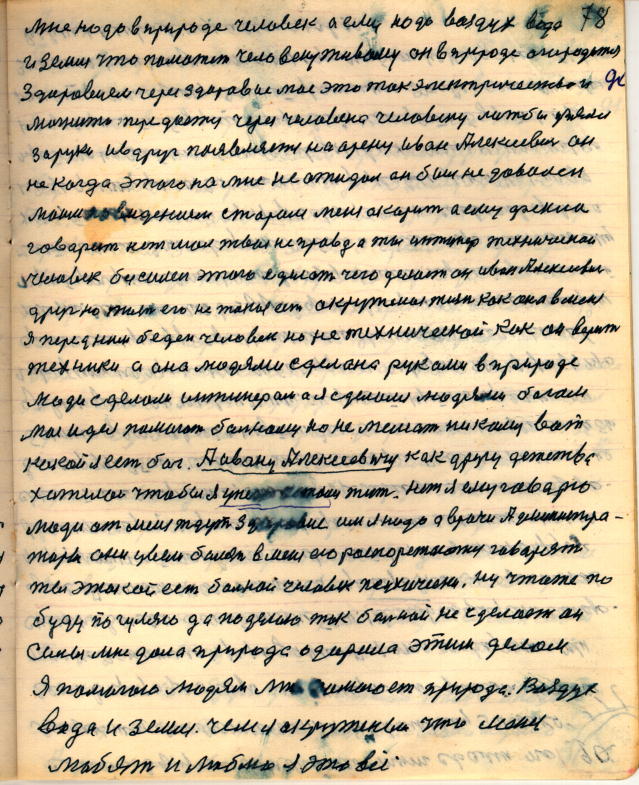 мне надо в природе человек а ему надо воздух вода 78
и земля что поможет человеку живому он в природе
Здоровием через здоровье мое это ток электричество и
можно передкати через человека человеку лишбы взяли
за руки и вдруг появляется на арену иван Алексеевич он
не когда этого на мне не ожидал он был не доволен
моим поведением старался меня а ему фекла
говарит нет моя твая не правда ты инжинер технической
человек бессилен этого сделать чего делает он иван Алексеевич
друг но тело его не такой окружена как она в мене
Я перед ним беден человек но не технической как он верит
технике а она людями сделана руками в природе
люди сделали инжинером а я сделался людями богам
моя идея помогат балному но не мешат никому вот
какой я ест бог. А ивану Алексеевичу как другу детства
хателос чтобы я тип. Нет я ему говарю
люди от мене ждут здоровие им я надо а врачи Администра-
торы они увсем балят в мене его говарят
ты этакой ест балной человек психически. ну что же по
буду погуляю да поделаю ток балной не сделает он
Силы мне дала природа одарила этим делом
Я помогаю людям мне помогает природа. Воздух
вода и земля. чем я окружены что мене
любят и люблю я это всё.